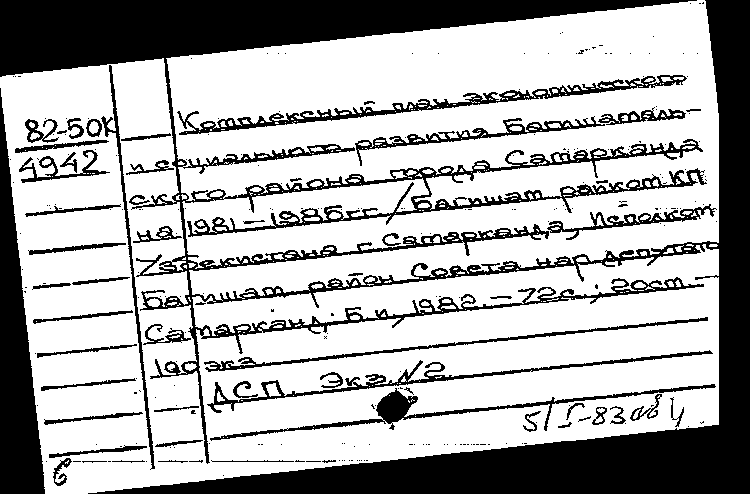 82-50К
4942
Комплексный план экономического
и социального развития Багишамаль-
ского района города Самарканда
на 1981-1985гг / Багишам райком КП
Узбекистана г. Самарканда, Исполком
Багишам район Совета нар депутато
Самарканд: Б.и, 1982. - 72с.; 20см. -
100 экз
ДСП. Экз. №2.
6